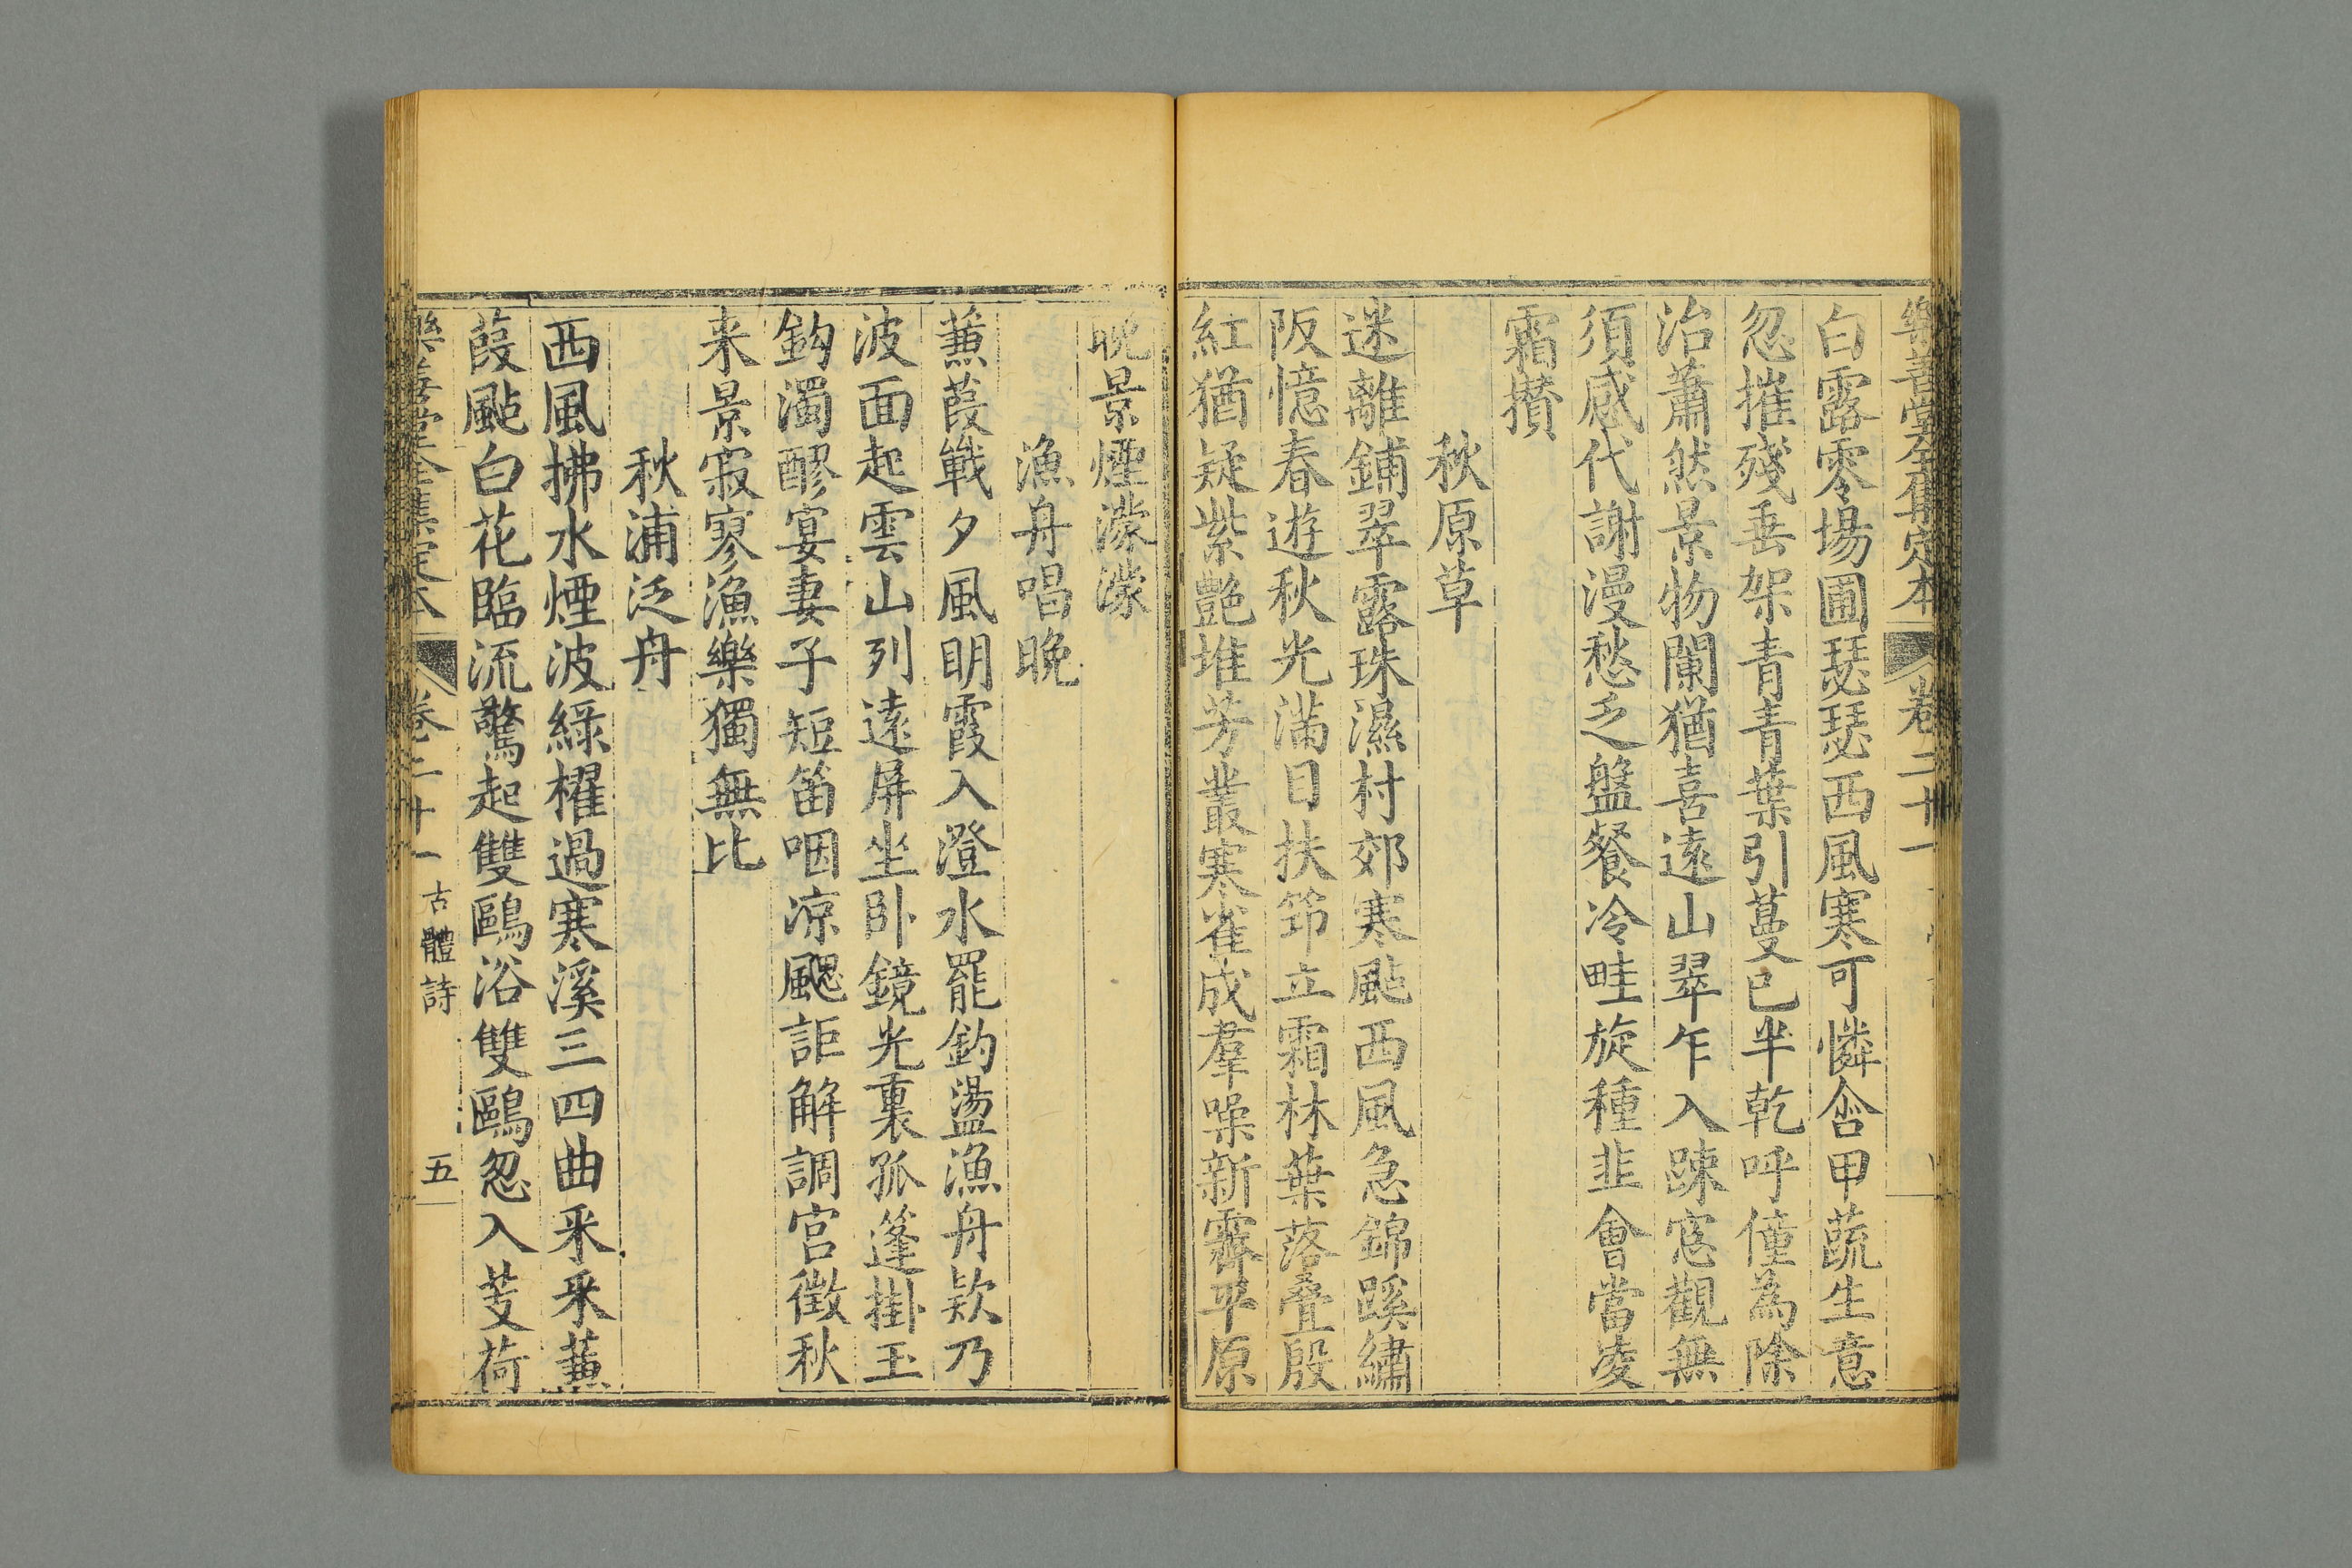 樂善堂全集定本 卷二十一
白露零場圃瑟瑟西風寒可憐含甲蔬生意
忽摧殘垂架青青葉引蔓已半乾呼僮為除
治蕭然景物闌猶喜遠山翠乍入疎窓觀無
須感代謝漫愁乏盤餐冷畦旋種韭會當凌
霜攅
秋原草
迷離鋪翠露珠濕村郊寒颭西風急錦蹊繡
阪憶春遊秋光滿目扶筇立霜林葉落疊殷
紅猶疑紫艷堆芳叢寒雀成羣噪新霽平原
晚景煙濛濛
漁舟唱晚
蒹葭戰夕風明霞入澄水罷釣盪漁舟欵乃
波面起雲山列遠屏坐卧鏡光裏孤篷掛玉
鈎濁醪宴妻子短笛咽凉颸詎解調宮徵秋
来景寂寥漁樂獨無比
秋浦泛舟
西風拂水煙波綠櫂過寒溪三四曲采采蒹
葭颭白花臨流驚起雙鷗浴雙鷗忽入芰荷
樂善堂全集定本 卷二十一 古體詩 五